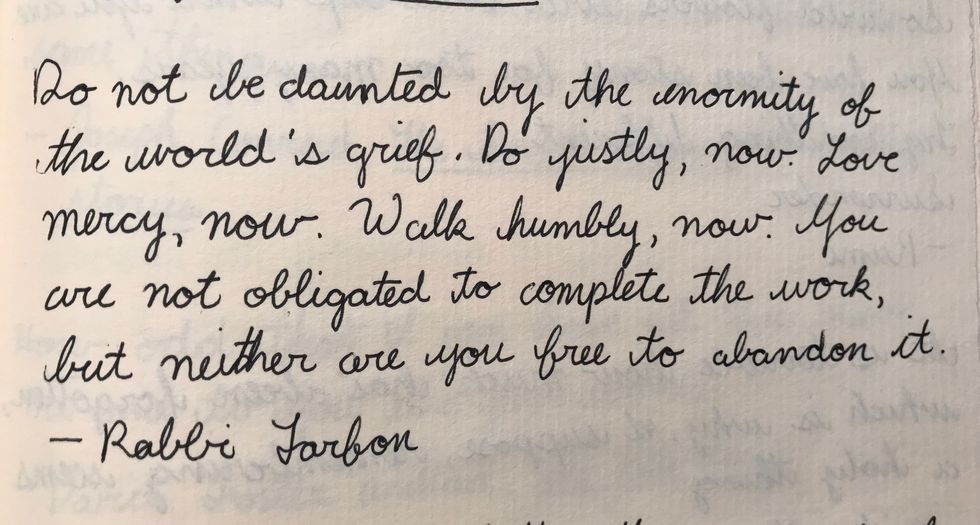 Do not be daunted by the enormity of
the world's grief. Do justly, now. Love
mercy, now. Walk humbly, now. You
are not obligated to complete the work,
but neither are you free to abandon it.
- Rabbi Tarbon